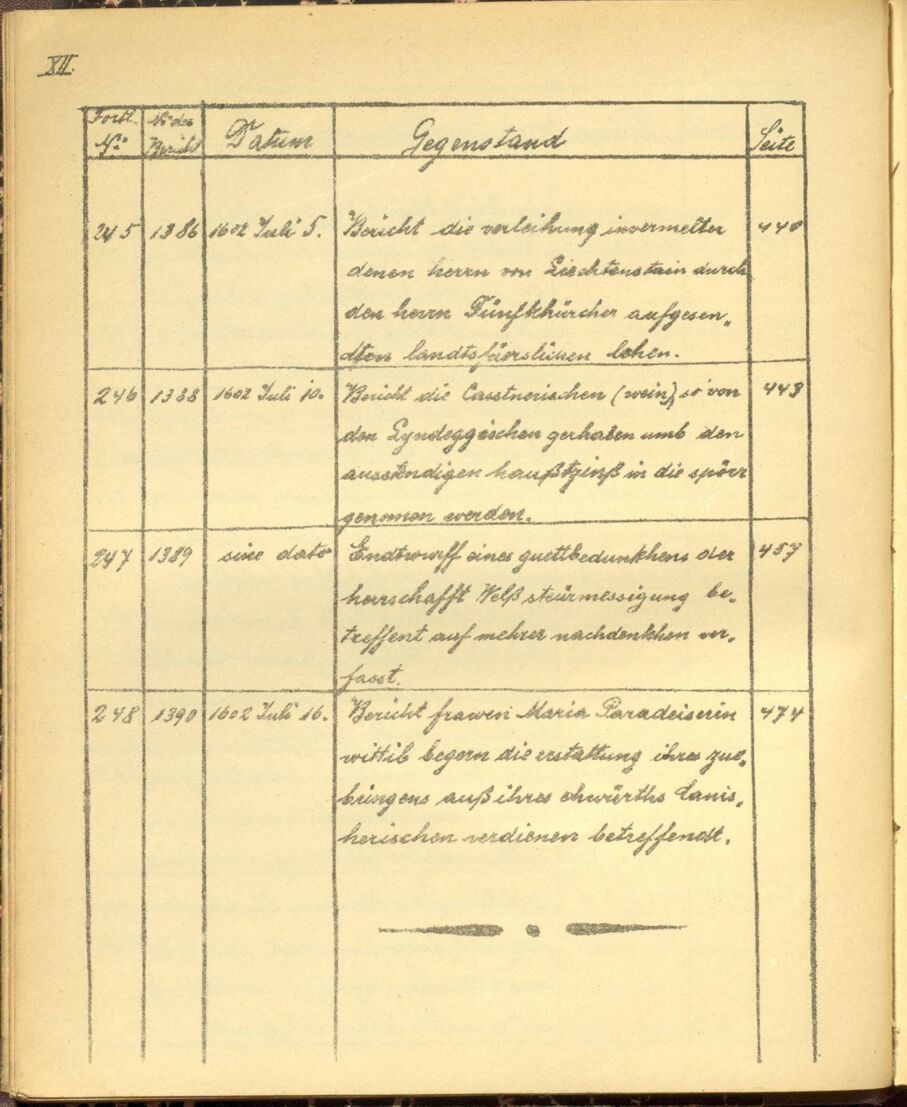 XII.
Fortl. No. des Datum Gegenstand Seite
No. Bericht
245 1386 1602 Juli 5. Bericht die verleihung invermelter 440
denen herrn von Liechtenstain durch
den herrn Fünfkhürcher aufgesen„
dten landtsfüerslichen lehen.
246 1388 1602 Juli 10. Bericht die Casstnerischen (wein), so von 443
den Lyndeggischen gerhaben umb den
ausstendigen haußtzinß in die spörr
genomen werden.
247 1389 sine dato Endtwurff eines guettbedunkhens der 457
herrschafft Welß steürmessigung be„
treffent auf mehrer nachdenkhen ver„
fasst.
248 1390 1602 Juli 16. Bericht frawen Maria Paradeiserin 474
wittib begern die erstattung ihres zue„
bringens auß ihres ehwürths Canis„
herischen verdienen betreffendt.